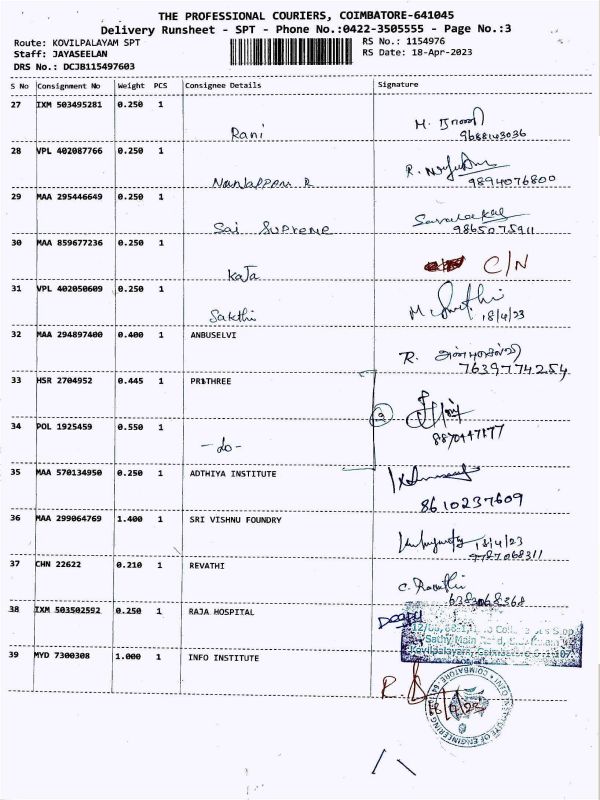 THE PROFESSIONAL COURIERS, COIMBATORE-641045
Delivery Runsheet - SPT - Phone No.:0422-3505555 - Page No.:3
Route: KOVILPALAYAM SPT
RS No.: 1154976
Staff: JAYASEELAN
RS Date: 18-Apr-2023
DRS No.: DCJB115497603
S No Consignment No Weight PCS Consignee Details Signature
27 IXM 503495281 0.250 1
Rani M.
9688143036
28 VPL 402087766 0.250 1
Nanjappan R R.
9894076800
29 MAA 295446649 0.250 1
Sai Supreme
9865075911
30 MAA 859677236 0.250 1
Kaja C/N
31 VPL 402050609 0.250 1
Sakthi M
18/4/23
32 MAA 294897400 0.400 1 ANBUSELVI
R. அன்புசெல்வி
7639774254
33 HSR 2704952 0.445 1 PRITHREE
34 POL 1925459 0.550 1
-do-
35 MAA 570134950 0.250 1 ADTHIYA INSTITUTE
8610237609
36 MAA 299064769 1.400 1 SRI VISHNU FOUNDRY
18/4/23
9787068311
37 CHN 22622 0.210 1 REVATHI
C. Revathi
6383068368
38 IXM 503502592 0.250 1 RAJA HOSPITAL
Deepa
Sathy Main
Kovilpalayam, Coimbatore
39 MYD 7300308 1.000 1 INFO INSTITUTE
R.
18/4/23
INFO INSTITUTE OF ENGINEERING
COIMBATORE